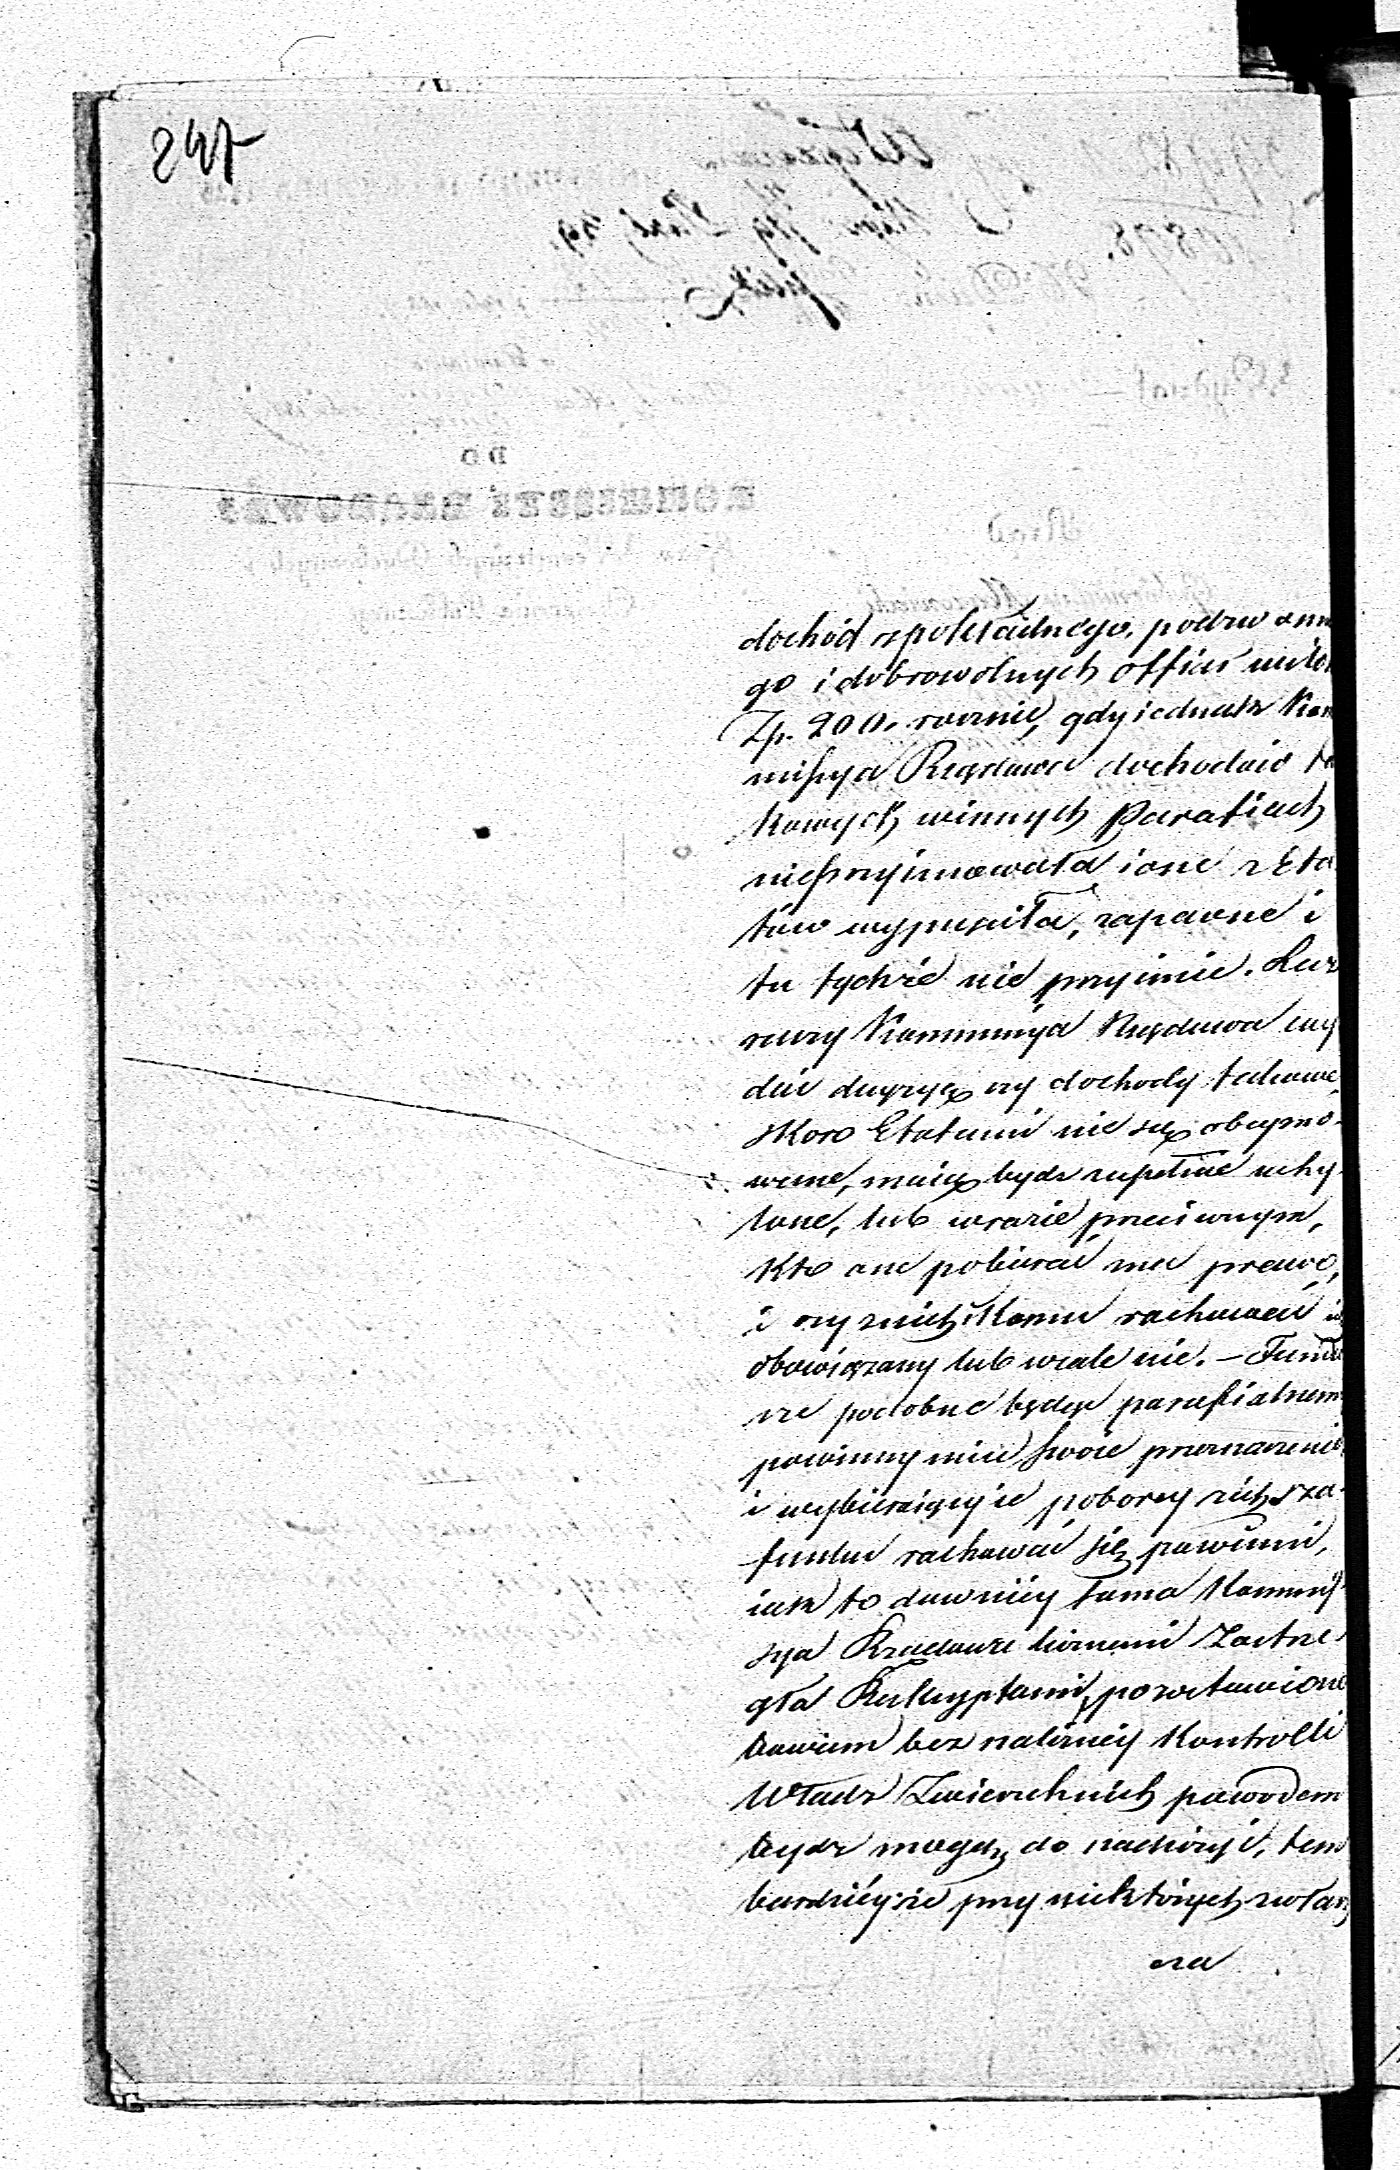 247
dochód z pokładnego, podzwonne
go i dobrowolnych offiar
Zp. 200. rocznie, gdy iednak Kom
missya Rządowa dochodów ta
kowych winnych Parafiach
nieprzyimowała ione z Eta
tów wypuściła, zapewne i
tu tychże nie przyimie. Lecz
raczy Kommissya Rządowa wy
dać decyzyą czy dochody takowe,
skoro Etatami nie są obeymo-
wane, maią bydz zupełnie uchy-
lone, lub wrazie przeciwnym,
Kto one pobierać ma prawo,
i czy znich Komu rachować
obowiązany lub wcale nie. – Fundu
sze podobne będąc parafialnemi
powinny mieć swoie przeznaczenie
i wybieraiący ie poborcy zich sza-
funku rachować się powinni,
iak to dawniéy sama Kommis-
sya Rządowa licznemi Zastrze-
gła Reskryptami, pozostawione
bowiem bez należnéy Kontrolli
Władz Zwierzchnich powodem
bydz mogą do nadużyć, tem
bardziéy że przy niektórych